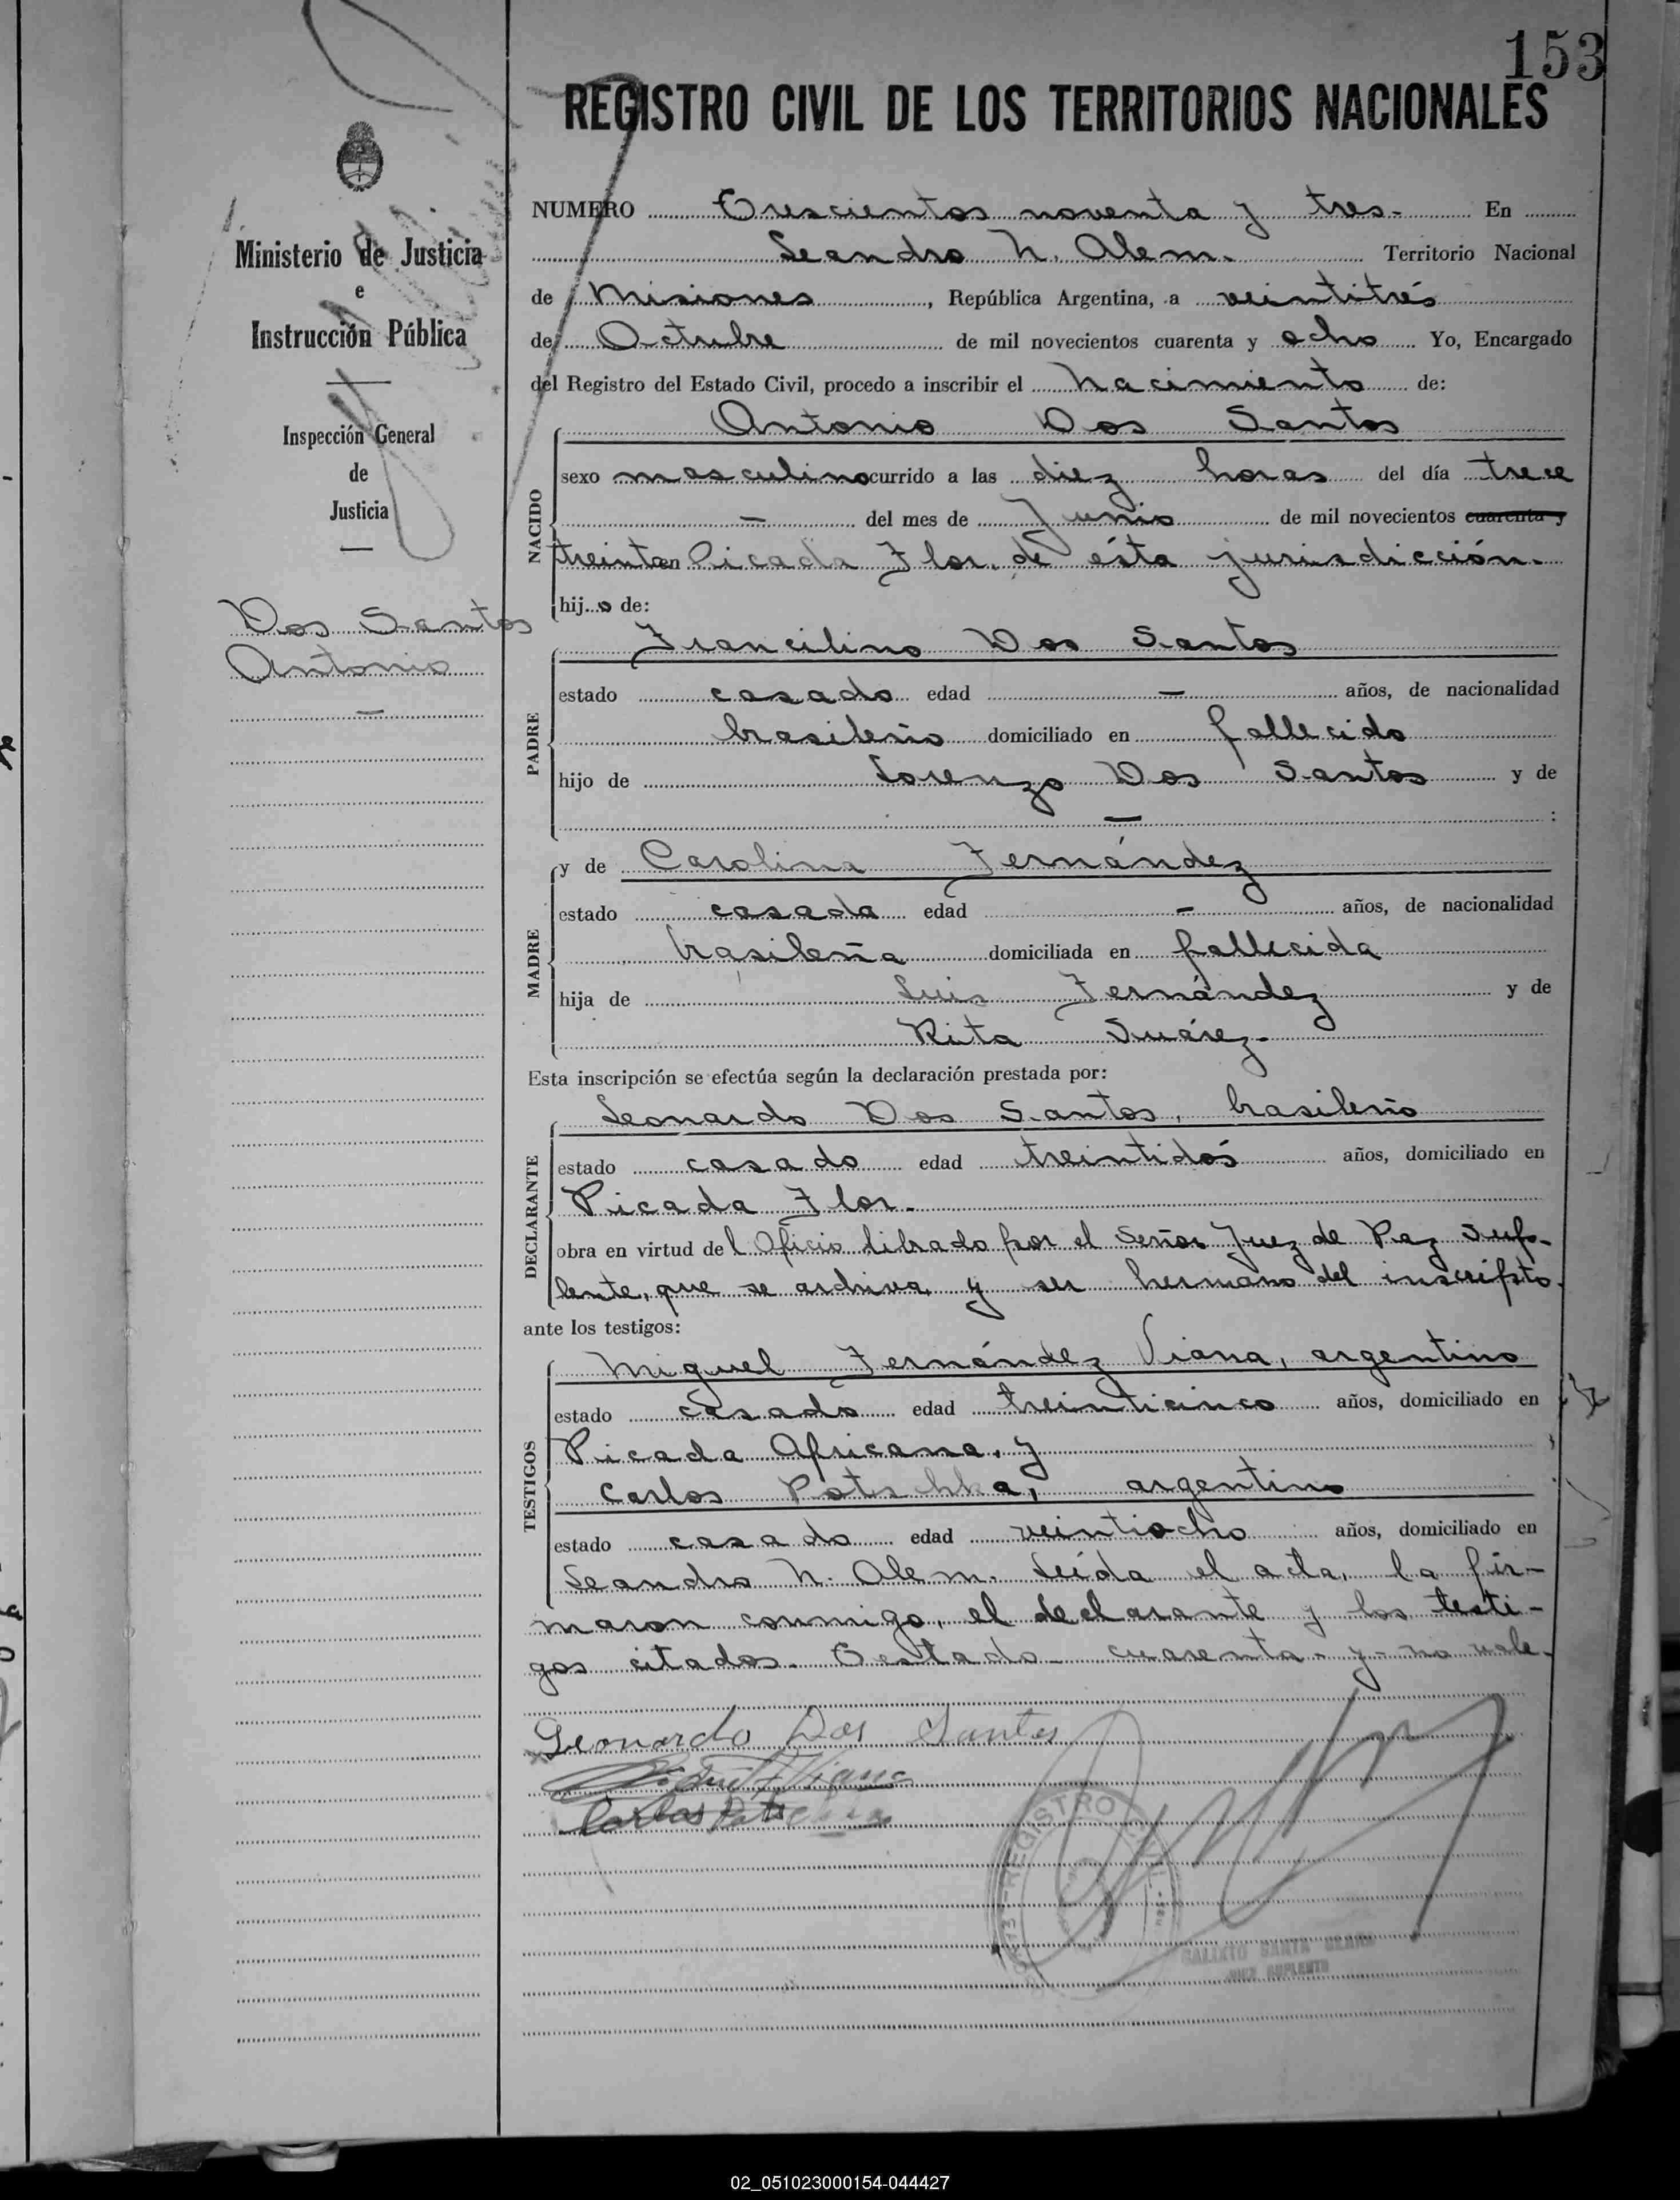 153
REGISTRO CIVIL DE LOS TERRITORIOS NACIONALES
Ministerio de Justicia
e
Instrucción Pública
Inspección General
de
Justicia
Dos Santos
Antonio
—
NUMERO Trescientos noventa y tres.- En
Leandro N. Alem. Territorio Nacional
de Misiones, República Argentina, a veintitrés
de Octubre de mil novecientos cuarenta y ocho Yo, Encargado
del Registro del Estado Civil, procedo a inscribir el nacimiento de:
Antonio Dos Santos
NACIDO
sexo masculino ocurrido a las diez horas del día trece
— del mes de Junio de mil novecientos cuarenta y
treinta en Picada Flor, de ésta jurisdicción.
hijo de:
Francilino Dos Santos
PADRE
estado casado edad — años, de nacionalidad
brasileño domiciliado en fallecido
hijo de Lorenzo Dos Santos y de
— :
MADRE
y de Carolina Fernández
estado casada edad - años, de nacionalidad
brasileña domiciliada en fallecida
hija de Luis Fernández y de
Rita Suárez.
Esta inscripción se efectúa según la declaración prestada por:
Leonardo Dos Santos, brasileño
DECLARANTE
estado casado edad treintidós años, domiciliado en
Picada Flor.
obra en virtud del Oficio librado por el Señor Juez de Paz Sup-
lente, que se archiva, y ser hermano del inscripto.
ante los testigos:
Miguel Fernández Viana, argentino
TESTIGOS
estado casado edad treinticinco años, domiciliado en
Picada Africana, y
Carlos Potschka, argentino
estado casado edad veintiocho años, domiciliado en
Leandro N. Alem. Leída el acta, la fir-
maron conmigo, el declarante y los testi-
gos citados. Testado- cuarenta- y- no vale.
Leonardo Dos Santos
Carlos
REGISTRO
CALIXTO SANTA
JUEZ SUPLENTE
02_051023000154-044427